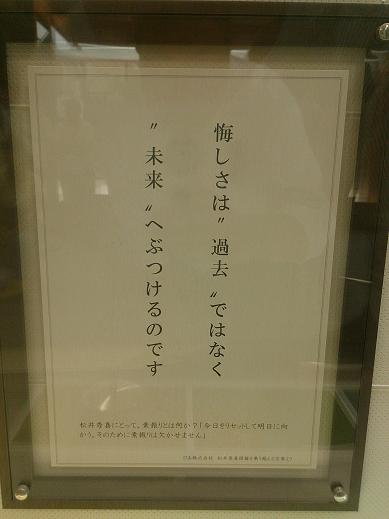 悔しさは〝過去〟ではなく
〝未来〟へぶつけるのです
松井秀喜にとって、素振りとは何か？「今日をリセットして明日に向
かう。そのために素振りは欠かせません」